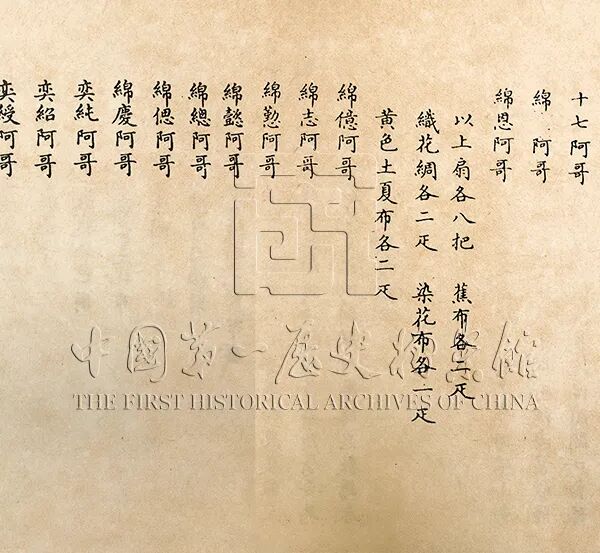 十七阿哥
綿 阿哥
綿恩阿哥
以上扇各八把 蕉布各二疋
織花綢各二疋 染花布各二疋
黄色土夏布各二疋
綿億阿哥
綿志阿哥
綿懃阿哥
綿懿阿哥
綿總阿哥
綿偲阿哥
綿慶阿哥
奕純阿哥
奕紹阿哥
奕綬阿哥
中國第一歷史檔案館
THE FIRST HISTORICAL ARCHIVES OF CHINA